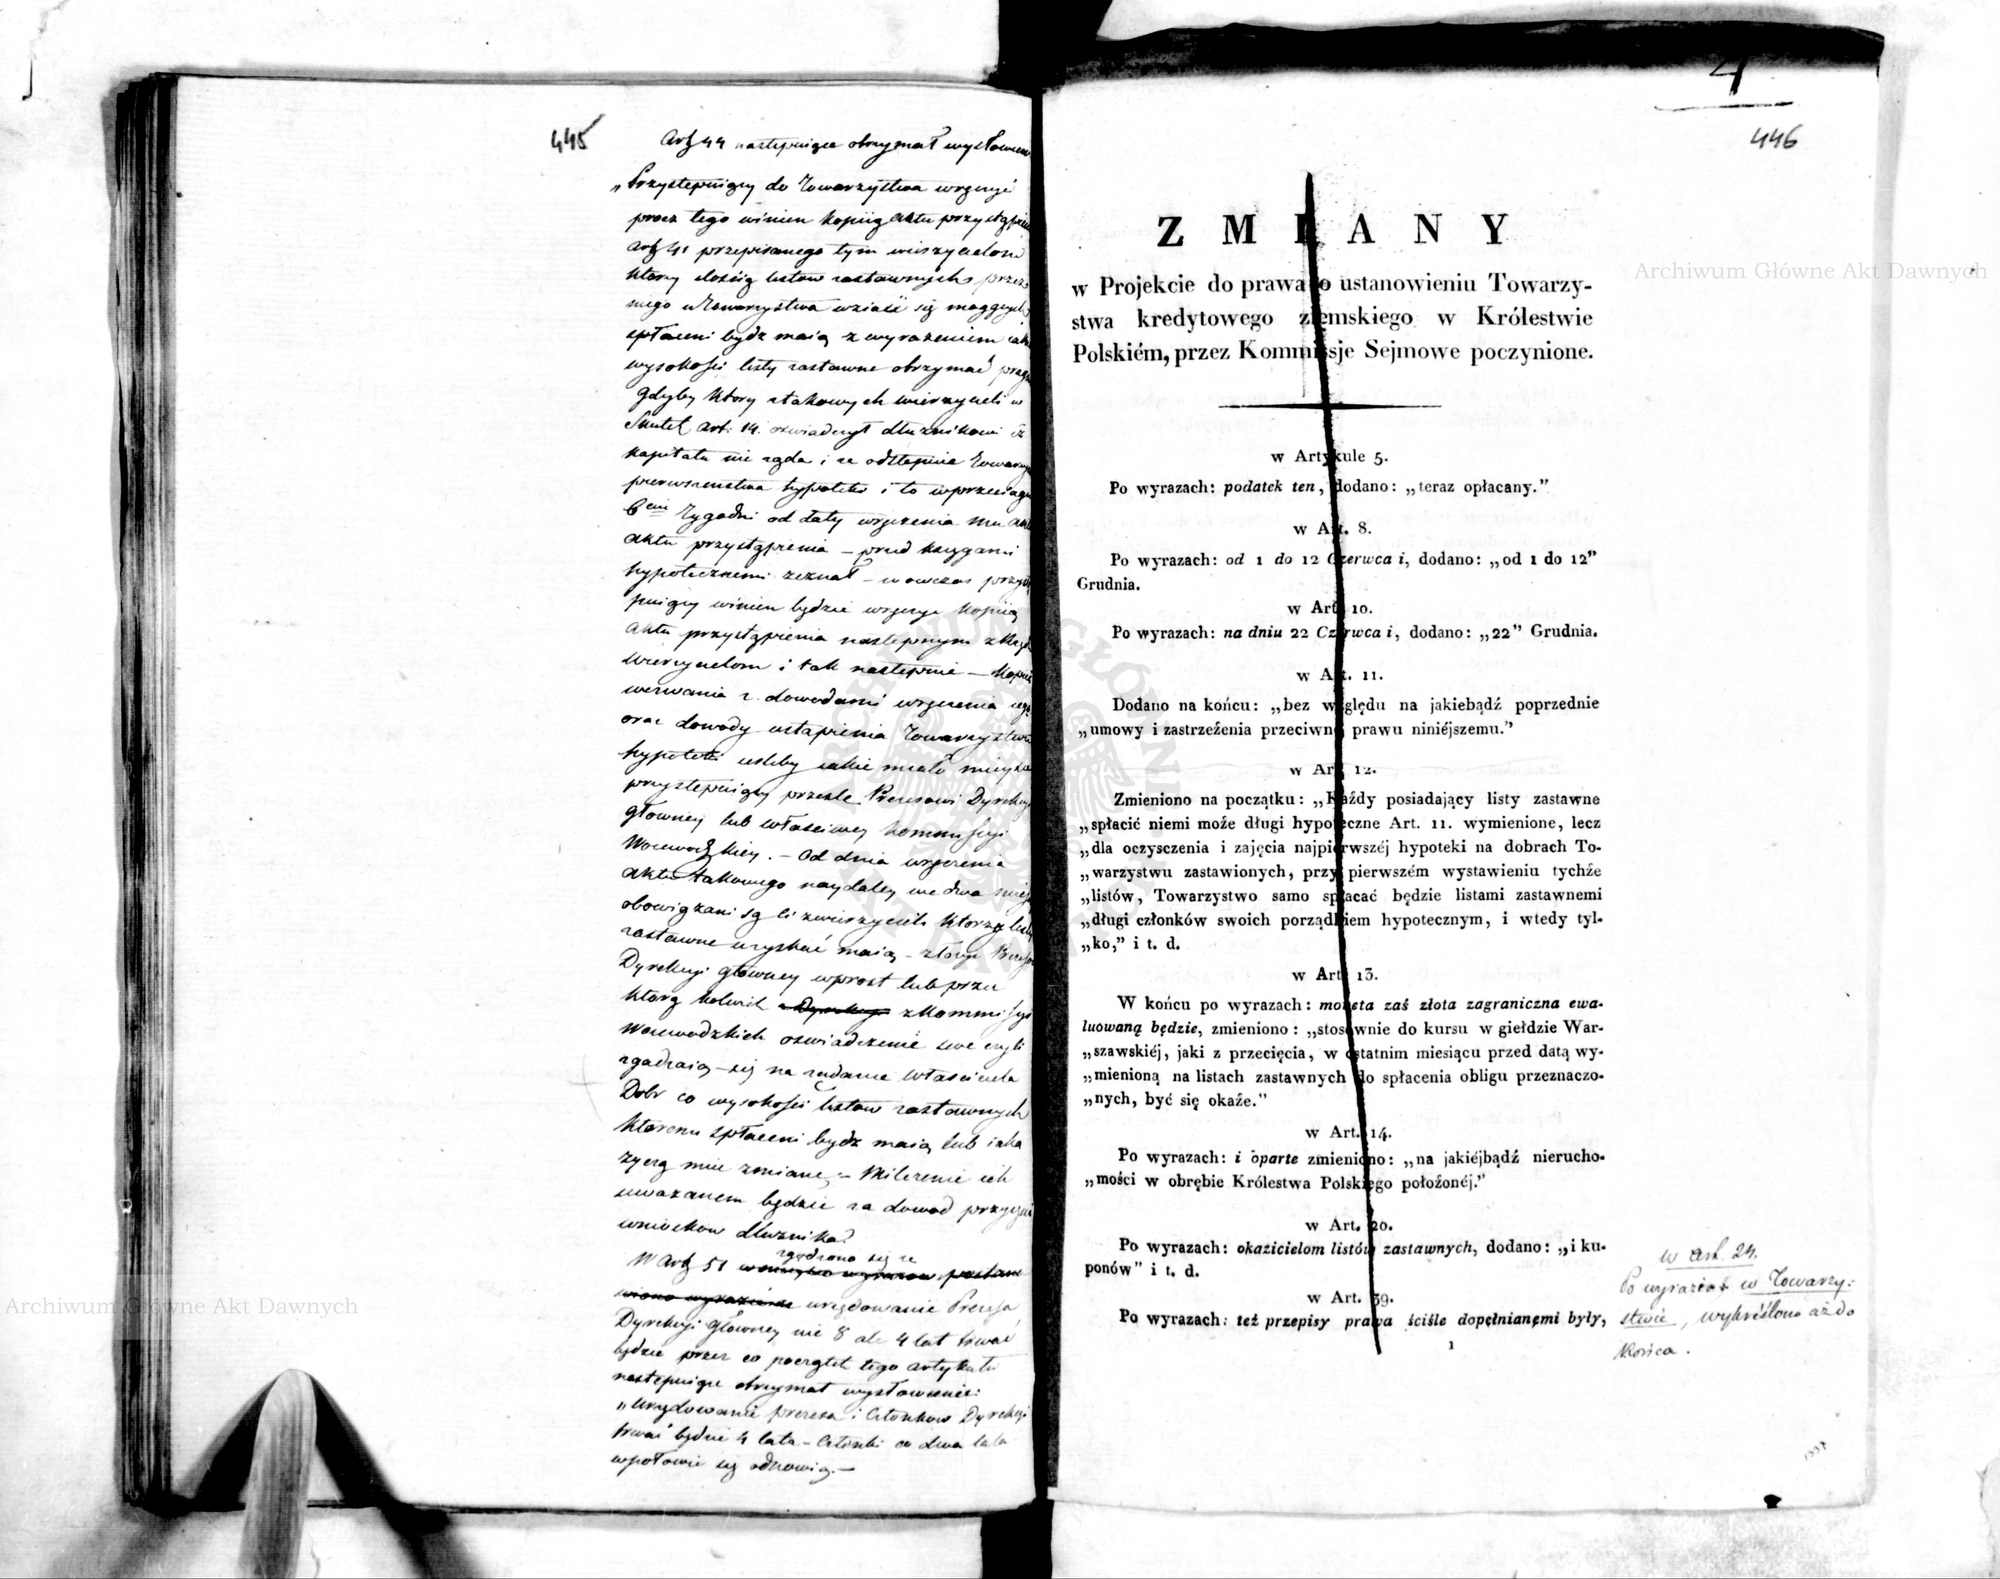 445
Art 44 następujące otrzymał wysłowienie
„Przystępuiący do Towarzystwa wręczyć
procz tego winien kopiią aktu przystąpienia
Art 41 przepisanego tym wierzycielom
ktorzy dosiąg listow zastawnych przez
niego u Towarzystwa wziąść się mogących
spłaceni bydź maią z wyrażeniem iakiey
wysokości listy zastawne otrzymać pragnie
Gdyby ktory z takowych wierzycieli w
Skutek Art: 14. oswiadczył dłużnikowi iż
kapitału nie żąda i że odstępuie Towarzystwu
pierwszenstwa hypoteki i to w przeciągu
6ciu Tygodni od daty wręczenia mu
aktu przystąpienia – przed księgami
hypotecznemi zeznał – wowczas przystę
puiący winien będzie wręczyć kopiią
aktu przystąpienia następnym z kolei
wierzycielom i tak następnie – Kopiie
wezwania z dowodami wręczenia iego
oraz dowody ustąpienia Towarzystwu
hypoteki ieśliby iakie miało mieysce
przystępuiący prześle Prezesowi Dyrekcyi
głowney lub właściwey Kommissyi
Woiewodzkiey. – Od dnia wręczenia
aktu takowego naydaley we dwa miesiące
obowiązani są ci z wierzycieli ktorzy listy
zastawne uzyskać maią – złożyć Prezesowi
Dyrekcyi głowney wprost lub przez
ktorą kolwiek z Kommissyi
Woiewodzkich oswiadczenie swe czyli
zgadzaią się na żądanie właściciela
Dobr co wysokości listow zastawnych
ktoremi spłaceni bydź maią lub iaką
życzą mieć zmianę – Milczenie ich
uważanem będzie za dowod przyięcia
wniosków dłużnika.
zgodzono się że
W Art 51 urzędowanie Prezesa
Dyrekcyi Głowney nie 8 ale 4 lat trwać
będzie przez co początek tego artykułu
następuiące otrzymał wysłowienie:
„Urzędowanie prezesa i Członkow Dyrekcyi
trwać będzie 4 lata – Członki co dwa lata
w połowie się odnowią. –
4
446
ZMIANY
w Projekcie do prawa o ustanowieniu Towarzy-
stwa kredytowego ziemskiego w Królestwie
Polskiém, przez Kommissje Sejmowe poczynione.
w Artykule 5.
Po wyrazach: podatek ten, dodano: „teraz opłacany.”
w Art. 8.
Po wyrazach: od 1 do 12 Czerwca i, dodano: „od 1 do 12”
Grudnia.
w Art. 10.
Po wyrazach: na dniu 22 Czerwca i, dodano: „22” Grudnia.
w Art. 11.
Dodano na końcu: „bez względu na jakiebądź poprzednie
„umowy i zastrzeżenia przeciwne prawu niniéjszemu.”
w Art. 12.
Zmieniono na początku: „Każdy posiadający listy zastawne
„spłacić niemi może długi hypoteczne Art. 11. wymienione, lecz
„dla oczysczenia i zajęcia najpierwszéj hypoteki na dobrach To-
„warzystwu zastawionych, przy pierwszém wystawieniu tychże
„listów, Towarzystwo samo spłacać będzie listami zastawnemi
„długi członków swoich porządkiem hypotecznym, i wtedy tyl-
„ko,” i t. d.
w Art. 13.
W końcu po wyrazach: moneta zaś złota zagraniczna ewa-
luowaną będzie, zmieniono: „stosownie do kursu w giełdzie War-
„szawskiéj, jaki z przecięcia, w ostatnim miesiącu przed datą wy-
„mienioną na listach zastawnych do spłacenia obligu przeznaczo-
„nych, być się okaże.”
w Art. 14.
Po wyrazach: i oparte zmieniono: „na jakiéjbądź nierucho-
„mości w obrębie Królestwa Polskiego położonéj.”
w Art. 20.
Po wyrazach: okazicielom listów zastawnych, dodano: „i ku-
ponów” i t. d.
w Art. 39.
Po wyrazach: też przepisy prawa ściśle dopełnianemi były,
1
w Art. 24.
Po wyrazach w Towarzy:
stwie, wykreślono aż do
Końca.
Archiwum Główne Akt Dawnych
Archiwum Główne Akt Dawnych
ARCHIWUM GŁÓWNE AKT DAWNYCH